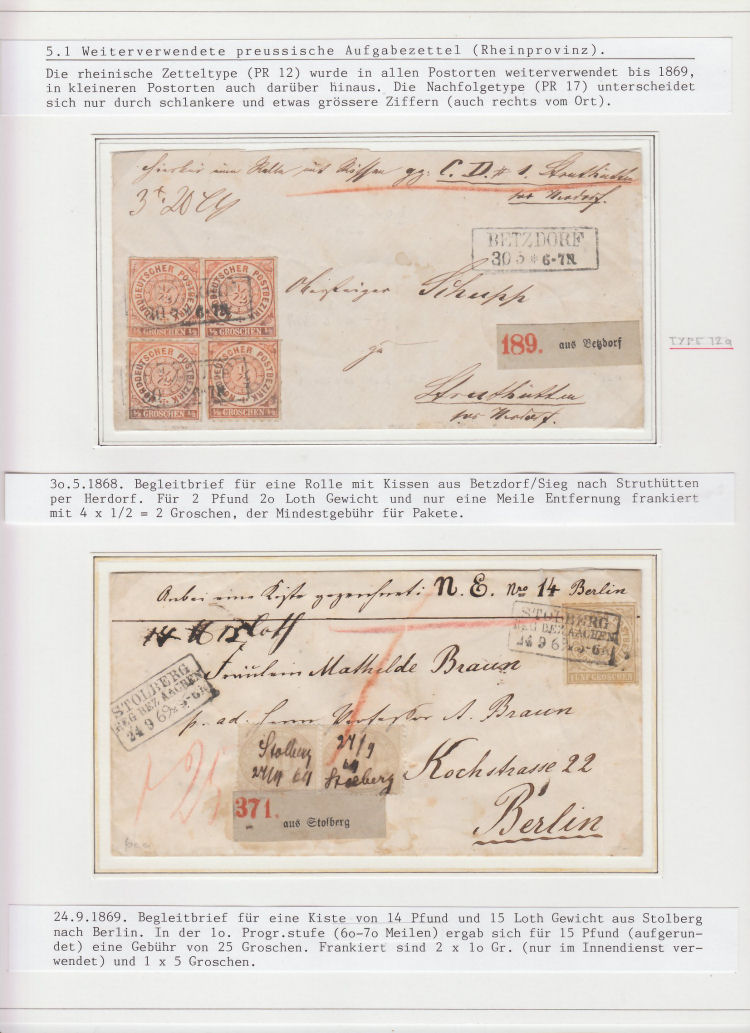 5.1 Weiterverwendete preussische Aufgabezettel (Rheinprovinz).
Die rheinische Zetteltype (PR 12) wurde in allen Postorten weiterverwendet bis 1869,
in kleineren Postorten auch darüber hinaus. Die Nachfolgetype (PR 17) unterscheidet
sich nur durch schlankere und etwas grössere Ziffern (auch rechts vom Ort).
Hierbei eine Rolle mit Kissen gz: C. D. # 1. Struthütten
per Herdorf.
BETZDORF
30 5 * 6-7N.
NORDDEUTSCHER POSTBEZIRK
1/2 GROSCHEN 1/2
NORDDEUTSCHER POSTBEZIRK
1/2 GROSCHEN 1/2
NORDDEUTSCHER POSTBEZIRK
1/2 GROSCHEN 1/2
NORDDEUTSCHER POSTBEZIRK
1/2 GROSCHEN 1/2
Obersteiger Schupp
zu
189. aus Betzdorf
TYPE 12a
Struthütten
per Herdorf.
3o.5.1868. Begleitbrief für eine Rolle mit Kissen aus Betzdorf/Sieg nach Struthütten
per Herdorf. Für 2 Pfund 2o Loth Gewicht und nur eine Meile Entfernung frankiert
mit 4 x 1/2 = 2 Groschen, der Mindestgebühr für Pakete.
Anbei eine Kiste gezeichnet: N. E. Nro 14 Berlin
STOLBERG
REG BEZ AACHEN
24 9 69 5-6N
FÜNF GROSCHEN
14 15 Loth
STOLBERG
REG BEZ AACHEN
24 9 69 5-6N
Fräulein Mathilde Braun
p. ad. Herrn A. Braun
Stolberg
24/9 69
24/9
69
Stolberg
Kochstrasse 22
Berlin
371.
aus Stolberg
24.9.1869. Begleitbrief für eine Kiste von 14 Pfund und 15 Loth Gewicht aus Stolberg
nach Berlin. In der 1o. Progr.stufe (6o-7o Meilen) ergab sich für 15 Pfund (aufgerun-
det) eine Gebühr von 25 Groschen. Frankiert sind 2 x 1o Gr. (nur im Innendienst ver-
wendet) und 1 x 5 Groschen.